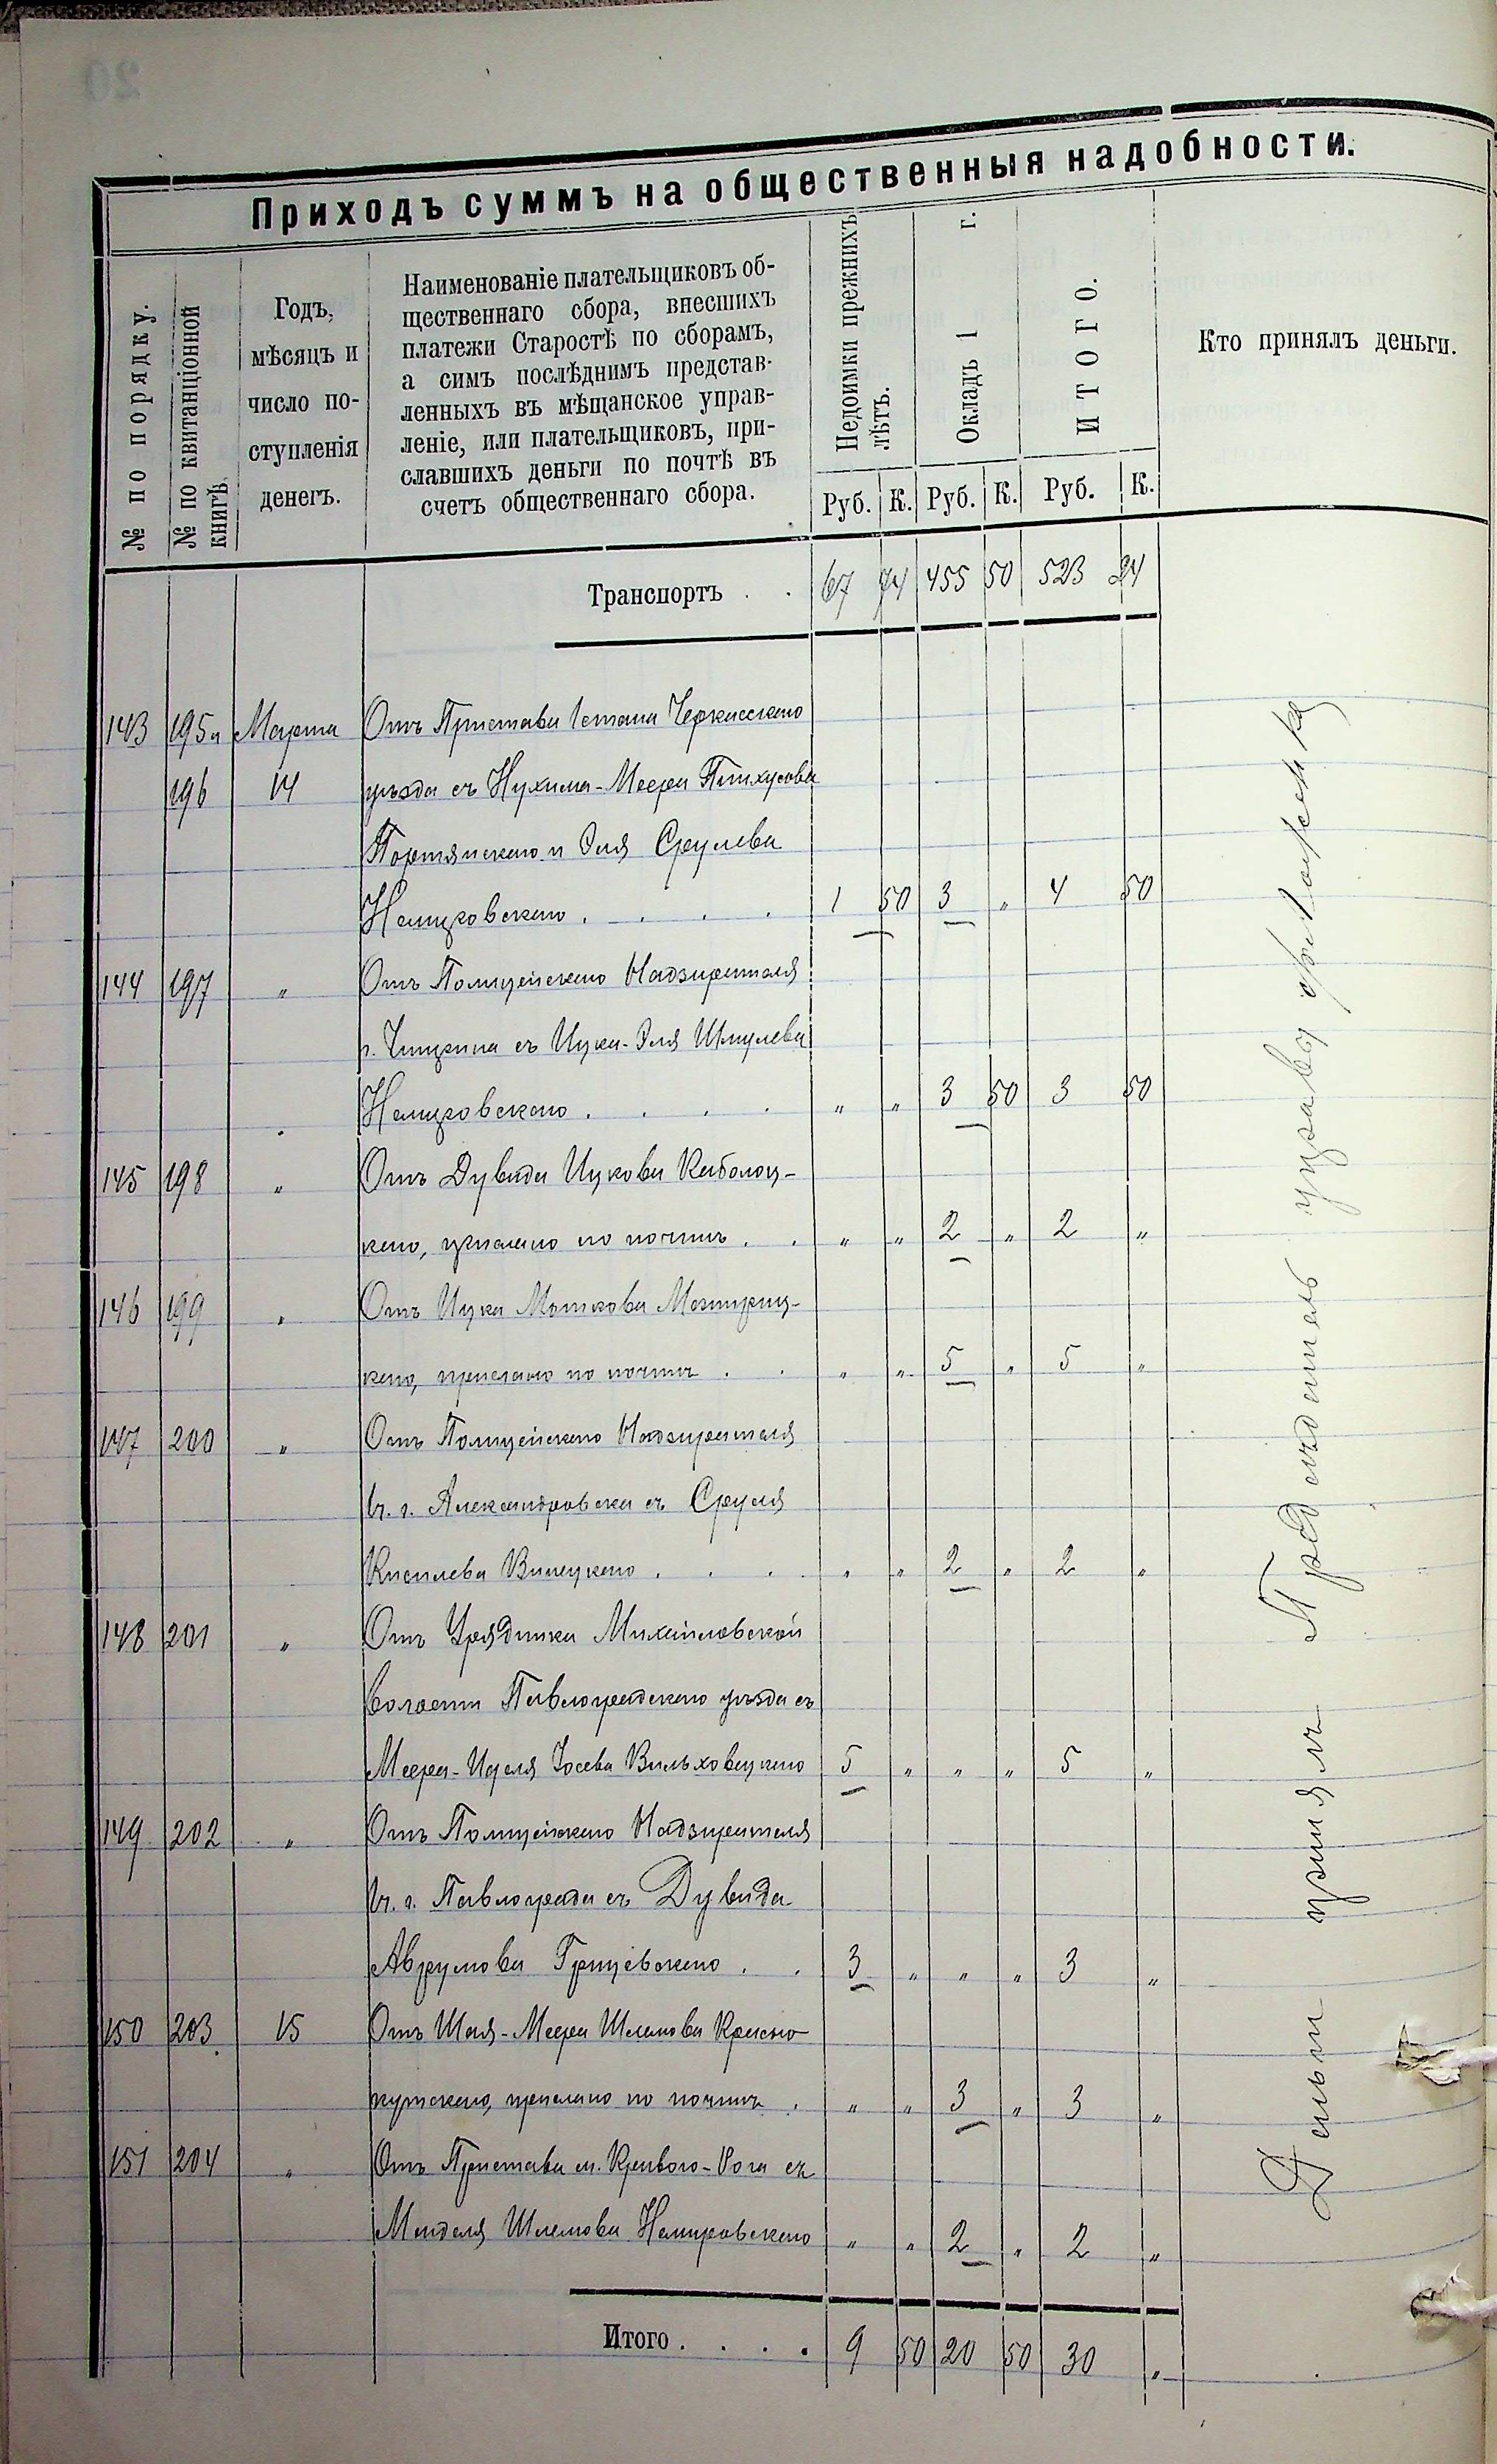 Приходъ суммъ на общественныя надобности.
№ по порядку.
№ по квитанціонной
книгѣ.
Годъ,
мѣсяцъ и
число по-
ступленія
денегъ.
Наименованіе плательщиковъ об-
щественнаго сбора, внесшихъ
платежи Старостѣ по сборамъ,
а симъ послѣднимъ представ-
ленныхъ въ мѣщанское управ-
леніе, или плательщиковъ, при-
славшихъ деньги по почтѣ въ
счетъ общественнаго сбора.
Недоимки прежнихъ
лѣтъ.
Окладъ 1 г.
ИТОГО.
Кто принялъ деньги.
Руб. К. Руб. К. Руб. К.
Транспортъ . . 67 74 455 50 523 24
143 195 и Марта Отъ Пристава 1 стана Черкасскаго
196 14 уѣзда съ Нухима-Меера Пинхусова
Портянскаго и Эля Срулева
Немировскаго . . . . 1 50 3 " 4 50
144 197 " Отъ Полицейскаго Надзирателя
г. Чигирина съ Ицка-Эля Шмулева
Немировскаго . . . . " " 3 50 3 50
145 198 " Отъ Дувида Ицкова Каболоц-
каго, прислано по почтѣ . . " " 2 " 2 "
146 199 " Отъ Ицка Мошкова
каго, прислано по почтѣ . . " " 5 " 5 "
147 200 " Отъ Полицейскаго Надзирателя
въ г. Александровска съ Сруля
Кисилева Винецкаго . . . " " 2 " 2 "
148 201 " Отъ Урядника Михайловской
волости Павлоградскаго уѣзда съ
Меера-Иделя Іосева Вильховецкаго 5 " " " 5 "
149 202 " Отъ Полицейскаго Надзирателя
въ г. Павлограда съ Дувида
Аврумова Грицевскаго . . 3 " " " 3 "
150 203 15 Отъ Шая-Меера Шлемова Красно-
кутскаго, прислано по почтѣ . " " 3 " 3 "
151 204 " Отъ Пристава м. Кривого-Рога съ
Менделя Шлемова Немировскаго " " 2 " 2 "
Итого . . . . 9 50 20 50 30 "
Деньги принялъ Предсѣдатель управы